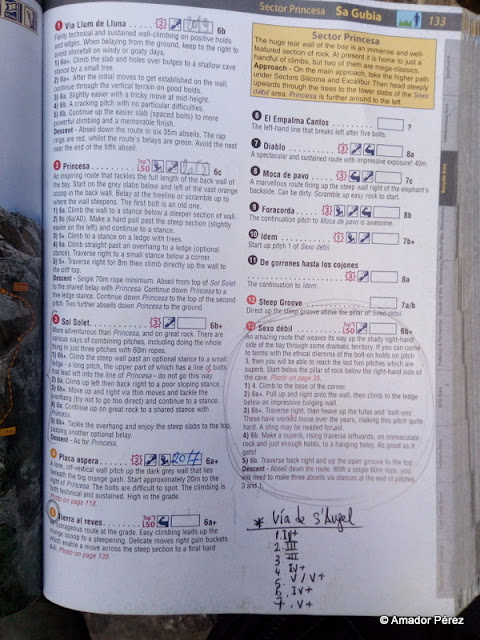 Sector Princesa Sa Gubia 133
1 Via Llum de Lluna 3 2014 6b
Fairly technical and sustained wall-climbing on positive holds
and edges. When belaying on the ground, keep to the right to
avoid stonefall on windy or goaty days.
1) 6a+. Climb the slab and holes over bulges to a shallow cave
stance by a small tree.
2) 6a+. After the initial moves to get established on the wall,
continue through the vertical terrain on good holds.
3) 6a. Slightly easier with a tricky move at mid-height.
4) 6b. A cracking pitch with no particular difficulties.
5) 6b. Continue up the easier slab (spaced bolts) to more
powerful climbing and a memorable finish.
Descent - Abseil down the route in six 35m abseils. The rap
rings are, whilst the route's belays are green. Avoid the nest
near the end of the fifth abseil.
2 Princesa Top 50 3 6c
An inspiring route that tackles the full length of the back wall of
the bay. Start on the grey slabs below and left of the vast orange
scoop in the back wall. Belay at the treeline or scramble up to
where the wall steepens. The first bolt is an old one.
1) 6a. Climb the wall to a stance below a steeper section of wall.
2) 6c (6a/A0). Make a hard pull past the steep section (slightly
easier on the left) and continue to a stance.
3) 5+. Climb to a stance on a ledge with trees.
4) 6a. Climb straight past an overhang to a ledge (optional
stance). Traverse right to a small stance below a corner.
5) 5+. Traverse right for 8m then climb directly up the wall to
the cliff top.
Descent - Single 70m rope minimum. Abseil from top of Sol Solet
to the shared belay with Princesa. Continue down Princesa to the
tree ledge stance. Continue down Princesa to the top of the second
pitch. Two further abseils down Princesa to the ground.
3 Sol Solet 3 6b+
More adventurous than Princesa, and on great rock. There are
various ways of combining pitches, including doing the whole
thing in just three pitches with 60m ropes.
1) 6b+. Climb the steep wall past an optional stance to a small
ledge - a long pitch, the upper part of which has a line of bolts
that exit left into the line of Princesa - do not go this way.
2) 6a. Climb up left then back right to a poor sloping stance.
3) 6b+. Move up and right via thin moves and tackle the
overhang (try not to go too direct) and continue to a stance.
4) 6a. Continue up on great rock to a shared stance with
Princesa.
5) 6b+. Tackle the overhang and enjoy the steep slabs to the top,
passing another optional belay.
Descent - As for Princesa.
4 Placa aspera 2 2014 6a+
A low, off-vertical wall pitch up the dark grey wall that lies
beneath the big orange scoop. Start approximately 20m to the
right of Princesa. The bolts are difficult to spot. The climbing is
both technical and sustained. High in the grade.
Photo on page 118.
5 Tierra al reves Top 50 6a+
An outrageous route at the grade. Easy climbing leads up the
orange scoop to a steepening. Delicate moves right gain buckets
which enable a move across the steep section to a final hard
pull. Photo on page 135.
Sector Princesa
The huge rear wall of the bay is an immense and well-
featured section of rock. At present it is home to just a
handful of climbs, but two of them are mega-classics.
Approach - On the main approach, take the higher path
under Sectors Silicona and Excalibur. Then head steeply
upwards through the trees to the lower slabs of the Sexo
débil area. Princesa is further around to the left.
6 El Empalma Cantos ?
The left-hand line that breaks left after five bolts.
7 Diablo 3 8a
A spectacular and sustained route with impressive exposure! 40m.
8 Moca de pavo 3 7c
A marvellous route firing up the steep wall right of the elephant's
backside. Can be dirty. Scramble up easy rock to start.
9 Foracorda 3 8b
The continuation pitch to Moca de pavo is awesome.
10 Idem 7b+
Start up pitch 1 of Sexo débil.
11 De gorrones hasta los cojones
3 8a
The continuation to Idem.
12 Steep Groove 7a/b
Direct up the steep groove above the pillar at Sexo débil.
13 Sexo débil Top 50 3 6b+
An amazing route that weaves its way up the shady right-hand
side of the bay through some dramatic territory. If you can come
to terms with the ethical dilemma of the bolt-on holds on pitch
3, then you will be able to reach the last two pitches which are
superb. Start below the pillar of rock below the right-hand side of
the cave. Photo on page 35.
1) 4. Climb to the base of the corner.
2) 6a+. Pull up and right onto the wall, then climb to the ledge
below an impressive bulging wall.
3) 6b+. Traverse right, then heave up the tufas and 'bolt-ons'.
These have worked loose over the years, making this pitch quite
hard. A sling may be needed for aid.
4) 6b. Make a superb, rising traverse leftwards, on immaculate
rock and just enough holds, to a hanging belay. As good as it
gets!
5) 6b. Traverse back right and up the open groove to the top.
Descent - Abseil down the route. With a single 60m rope, you
will need to make three abseils via stances at the end of pitches
3 and 1.
* Vía de S'Àngel
1. IV+
2. III
3. III
4 IV+
5. V/V+
6. IV+
7. V+
© Amador Pérez